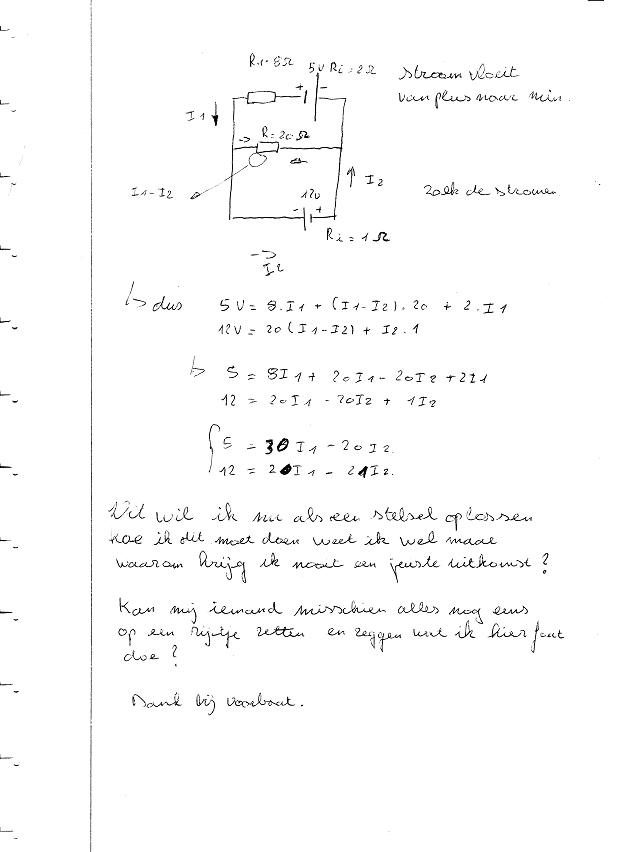 R1=8Ω
5V Ri=2Ω
stroom vloeit
van plus naar min.
+ -
I1
R=20Ω
I1-I2
I2
zoek de stromen
12V
- +
Ri = 1Ω
I2
dus 5V = 8.I1 + (I1-I2).20 + 2.I1
12V = 20(I1-I2) + I2.1
5 = 8I1 + 20I1 - 20I2 + 2I1
12 = 20I1 - 20I2 + 1I2
5 = 30I1 - 20I2.
12 = 20I1 - 21I2.
Dit wil ik nu als een stelsel oplossen
hoe ik dit moet doen weet ik wel maar
waarom krijg ik nooit een juiste uitkomst?
Kan mij iemand misschien alles nog eens
op een rijtje zetten en zeggen wat ik hier fout
doe?
Dank bij voorbaat.